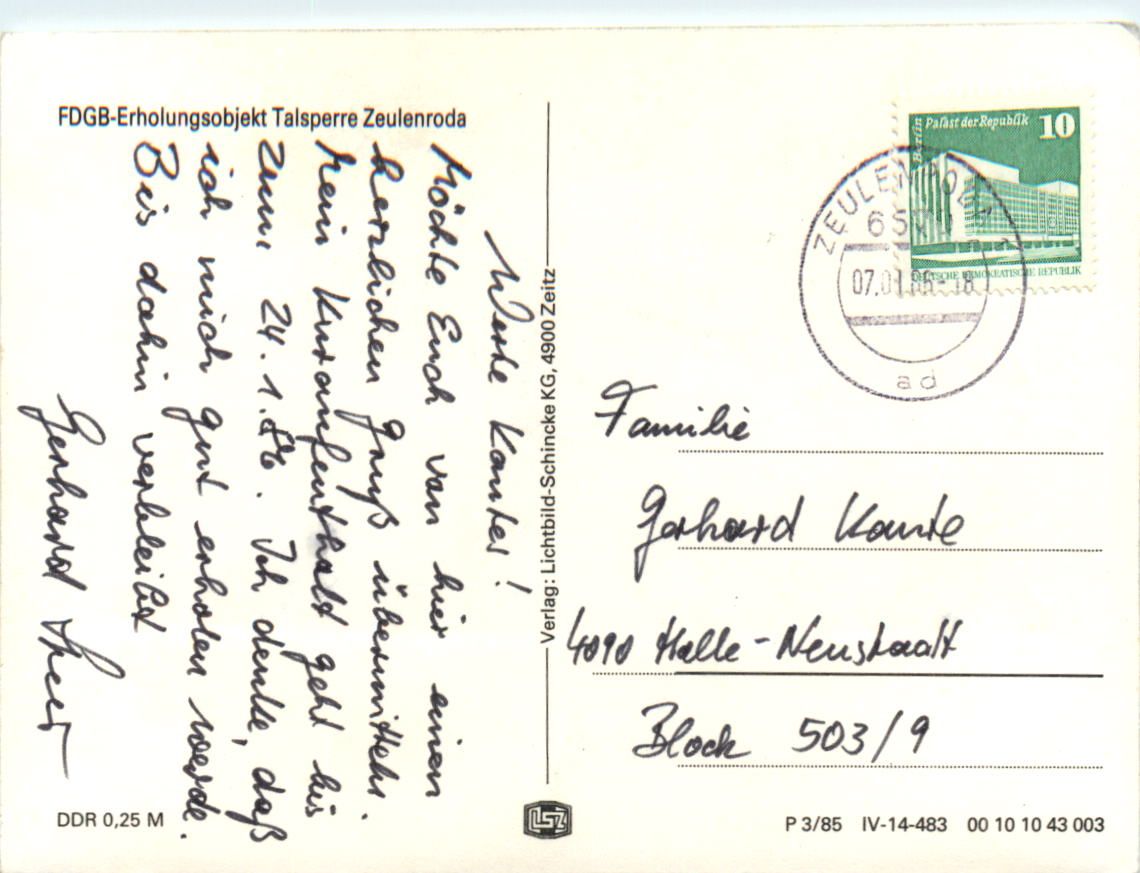 FDGB-Erholungsobjekt Talsperre Zeulenroda
Werte Kantes!
Möchte Euch von hier einen
herzlichen Gruß übermitteln.
Mein Kuraufenthalt geht bis
zum 24.1.86. Ich denke, daß
ich mich gut erholen werde.
Bis dahin verbleibt
Gerhard
DDR 0,25 M
Verlag: Lichtbild-Schincke KG, 4900 Zeitz
LSZ
Berlin
Palast der Republik 10
DEUTSCHE DEMOKRATISCHE REPUBLIK
ZEULENRODA 1
07.01.86-18
ad
Familie
Gerhard Kante
4090 Halle-Neustadt
Block 503/9
P 3/85 IV-14-483 00 10 10 43 003